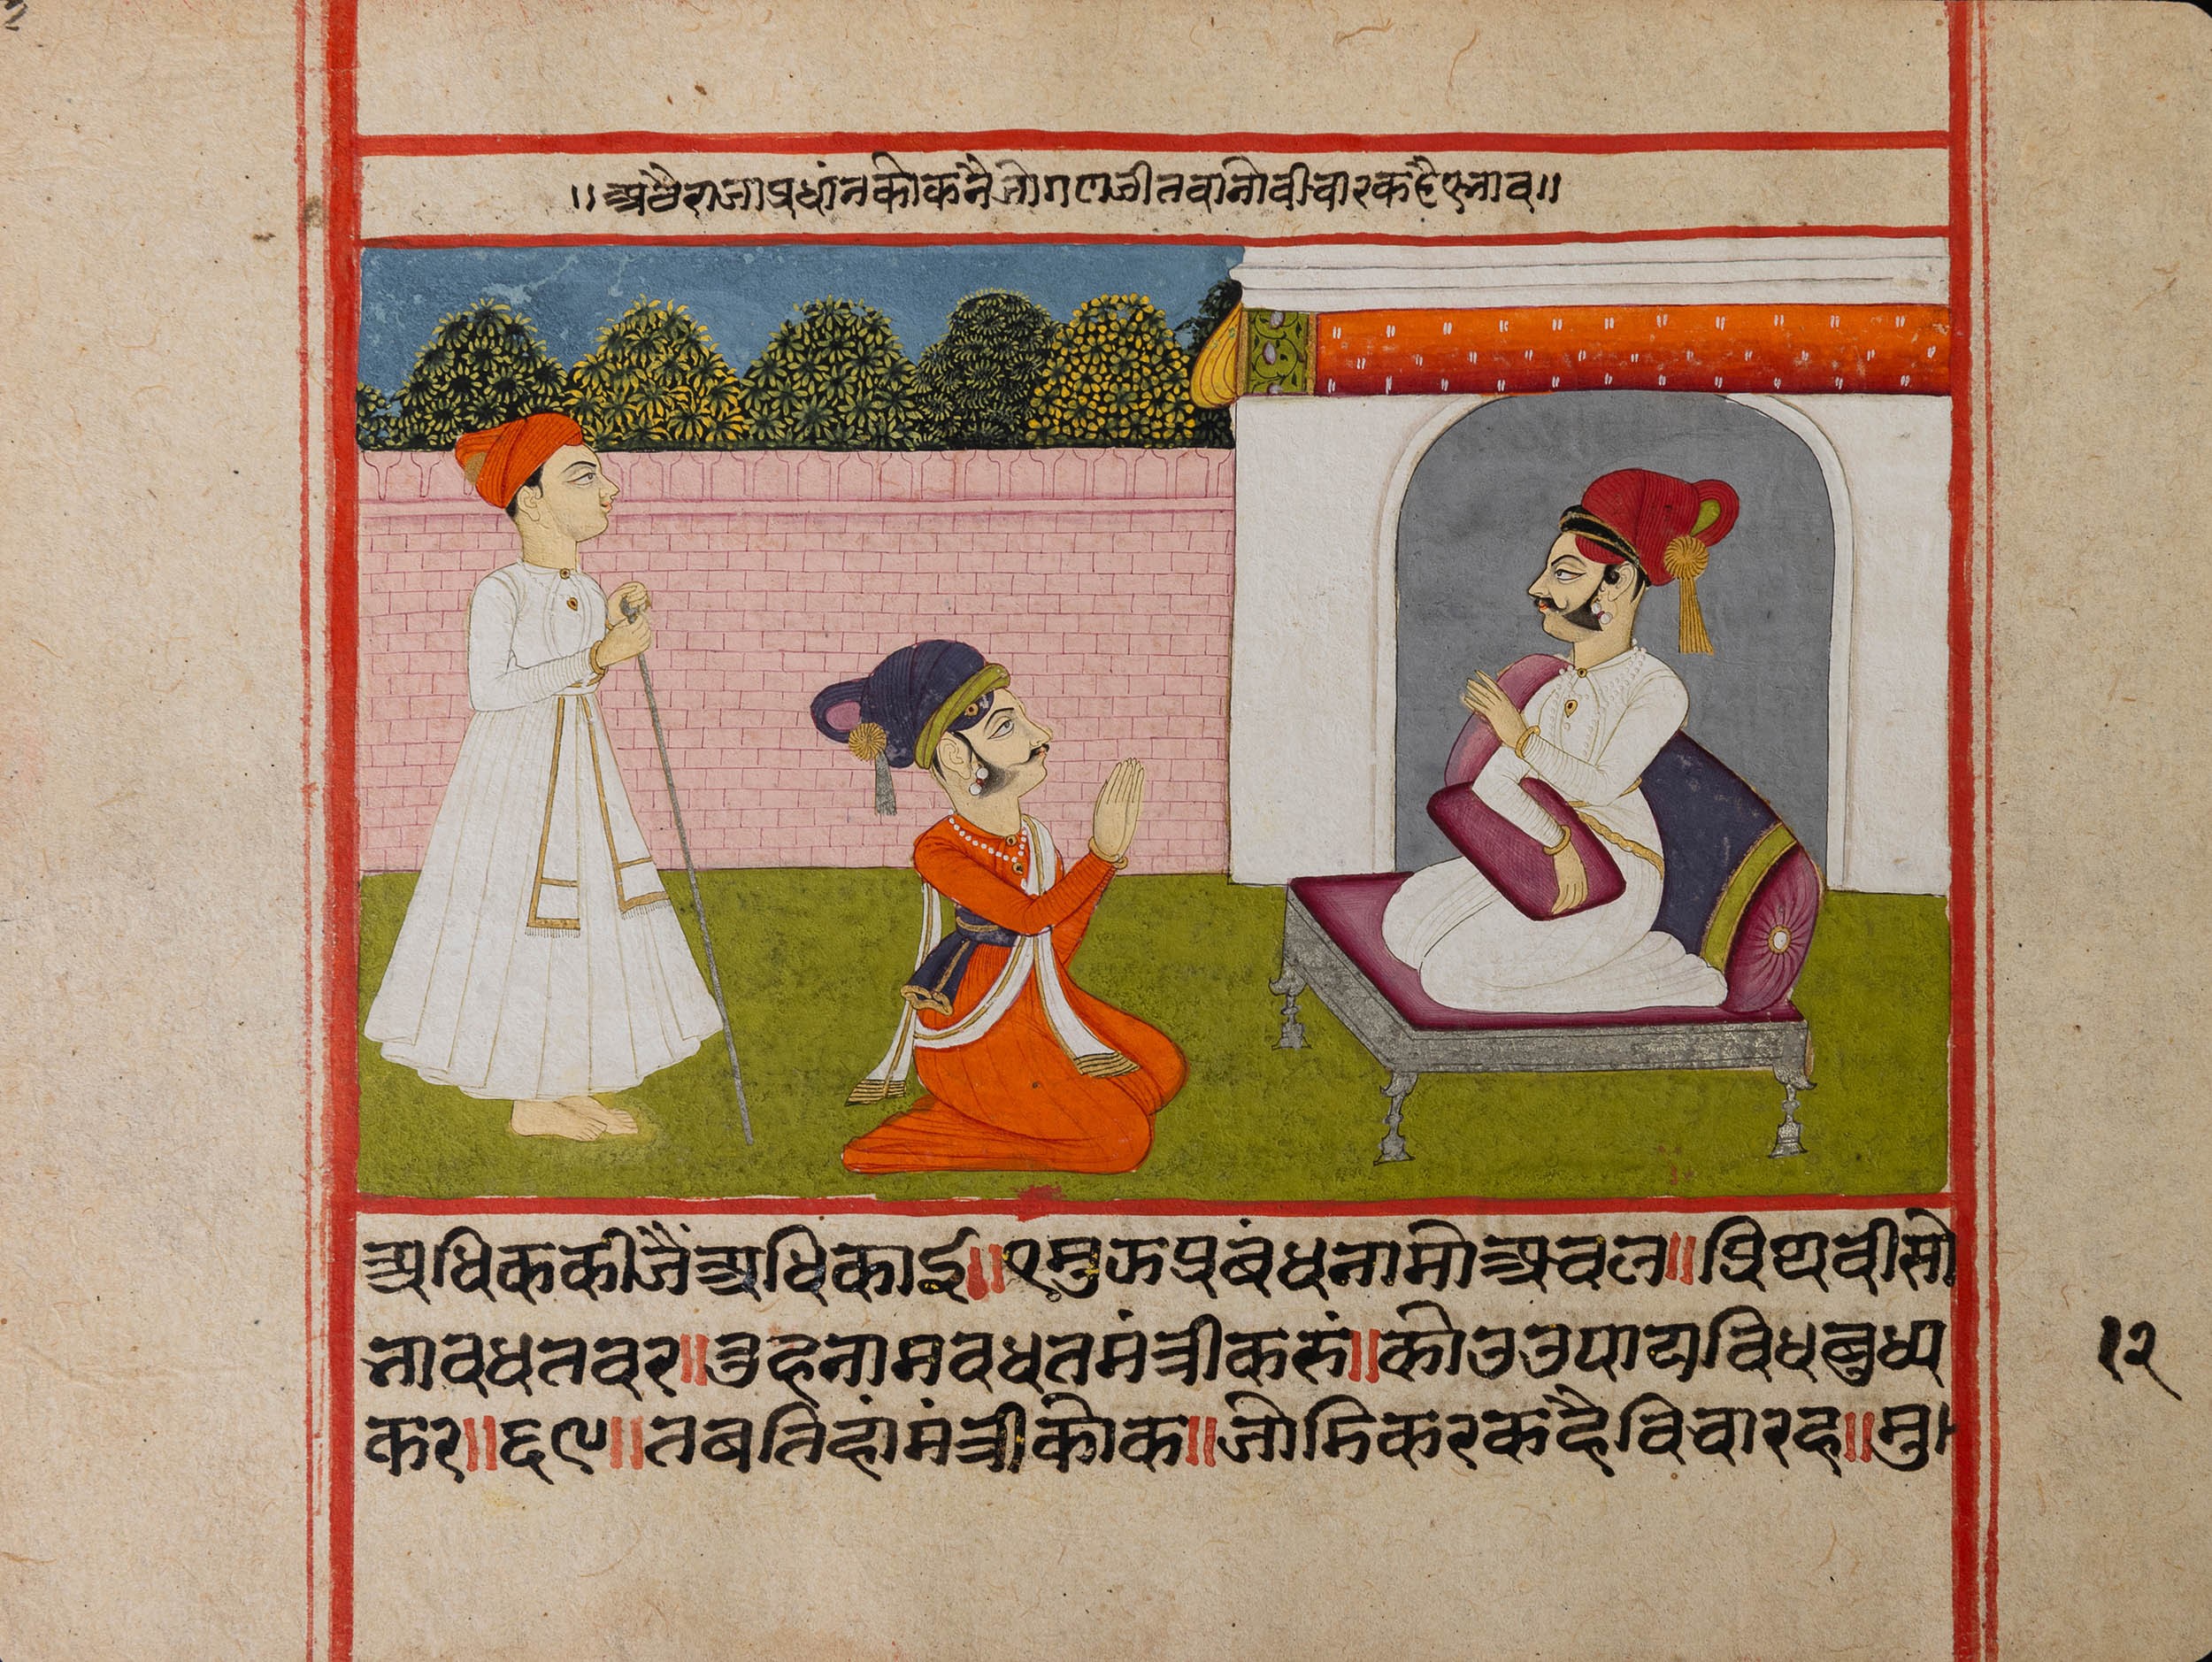 ॥अठैराजाप्रधांनकोकनैजोगणजीतवानोवीचारकहैएनाव॥
अधिककीजैंअधिकाई॥एमुकप्रबंधनामोअवल॥प्रिथवीसो
नावधतवर॥उहनामवधतमंत्रीकसं॥कोउउपायविधबुध्य
कर॥६९॥तबतिहांमंत्रीकोक॥जोमिकरकहैविचारह॥मु
१२